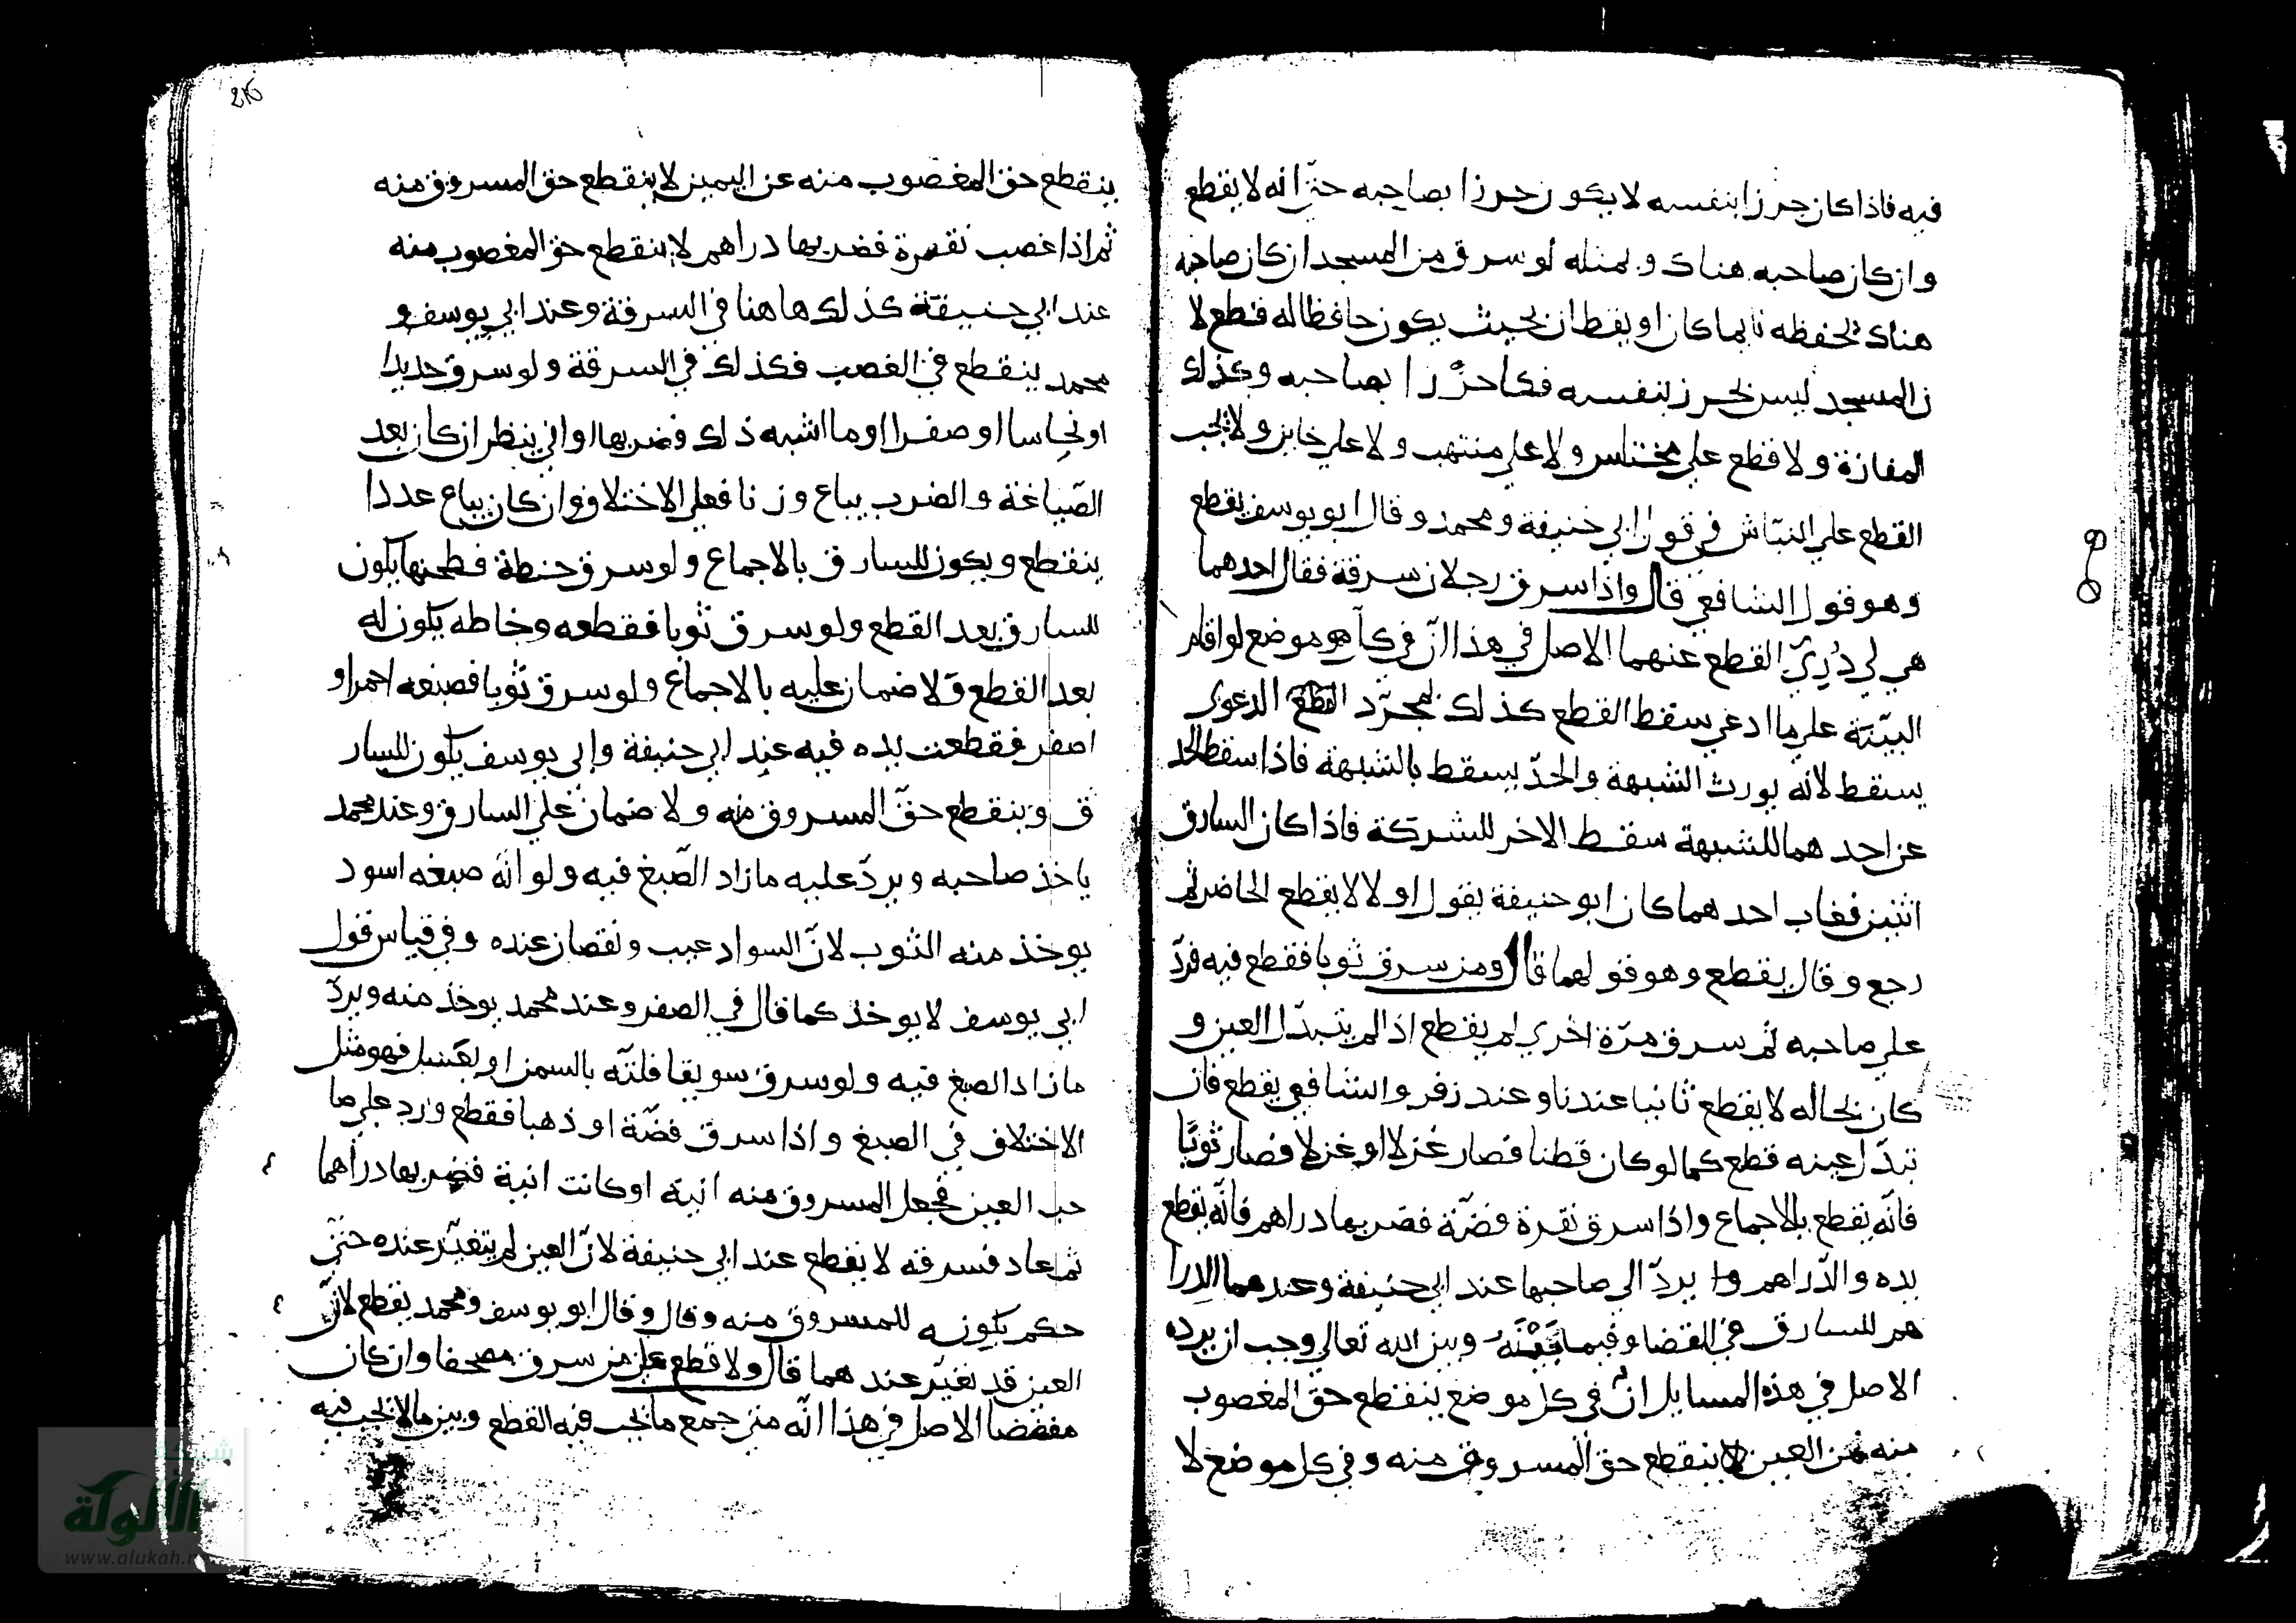 فيه فاذا كان حرزا بنفسه لا يكون حرزا بصاحبه حتي انه لا يقطع
وان كان صاحبه هناك وبمثله لو سرق من المسجد ان كان صاحبه
هناك يحفظه نايما كان او يقظان بحيث يكون حافظا له قطع لا
ن المسجد ليس بحرز بنفسه فكان حرزا بصاحبه وكذلك
المفازة ولا قطع علي مختلس ولا علي منتهب ولا علي خاين ولا يجب
القطع علي النباش في قول ابي حنيفة ومحمد وقال ابو يوسف يقطع
وهو قول الشافعي قال واذا سرق رجلان سرقة فقال احدهما
هي لي دُرِيَ القطع عنهما الاصل في هذا انّ في كل موضع لو اقام
البيّنة علي ما ادعي سقط القطع كذلك بمجرّد الدعوي
يسقط لانه يورث الشبهة والحدّ يسقط بالشبهة فاذا سقط الحد
عن احدهما للشبهة سقط الاخر للشركة فاذا كان السارق
اثنين فغاب احدهما كان ابو حنيفة يقول اولا لا يقطع الحاضر ثم
رجع وقال يقطع وهو قولهما قال ومن سرق ثوبا فقطع فيه فردّ
علي صاحبه ثم سرق مرّة اخري لم يقطع اذا لم يتبدّل العين و
كان بحاله لا يقطع ثانيا عندنا وعند زفر والشافعي يقطع فان
تبدّل عينه قطع كما لو كان قطنا فصار غزلا او غزلا فصار ثوبًا
فانّه يقطع بالاجماع واذا سرق نقرة فضّة فضربها دراهم فانّه يقطع
يده والدّراهم يردّ الي صاحبها عند ابي حنيفة وعندهما الدرا
هم للسارق في القضا وفيما بَيْنَهُ وبين الله تعالي وجب ان يرده
الاصل في هذه المسايل انّ في كل موضع ينقطع حق المغصوب
منه عن العين ينقطع حق المسروق منه وفي كل موضع لا
ينقطع حق المغصوب منه عن اليمين لا ينقطع حق المسروق منه
ثم اذا غصب نقرة فضربها دراهم لا ينقطع حق المغصوب منه
عند ابي حنيفة كذلك هاهنا في السرقة وعند ابي يوسف و
محمد ينقطع في الغصب فكذلك في السرقة ولو سرق حديدا
او نحاسا او صفرا او ما اشبه ذلك وضربها اواني ينظر ان كان بعد
الصّياغة والضرب يباع وزنا فعلي الاختلاف وان كان يباع عددا
ينقطع ويكون للسارق بالاجماع ولو سرق حنطة فطحنها يكون
للسارق بعد القطع ولو سرق ثوبا فقطعه وخاطه يكون له
بعد القطع ولا ضمان عليه بالاجماع ولو سرق ثوبا فصبغه احمر او
اصفر فقطعت يده فيه عند ابي حنيفة وابي يوسف يكون للسار
ق وينقطع حقّ المسروق منه ولا ضمان علي السارق وعند محمد
ياخذ صاحبه ويردّ عليه ما زاد الصّبغ فيه ولو انّه صبغه اسود
يوخذ منه الثوب لانّ السواد عيب ونقصان عنده وفي قياس قول
ابي يوسف لا يوخذ كما قال في الصفر وعند محمد يوخذ منه ويردّ
ما زاد الصبغ فيه ولو سرق سويقا فلتّه بالسمن او بعسل فهو مثل
الاختلاف في الصبغ واذا سرق فضّة او ذهبا فقطع ورد علي صا
حب العين فجعل المسروق منه انية او كانت انية فضربها دراهما
ثم عاد فسرقه لا يقطع عند ابي حنيفة لانّ العين لم يتغيّر عنده حتي
حكم للمسروق منه وقال وقال ابو يوسف ومحمد يقطع لانّ
العين قد تغيّر عندهما قال ولا قطع علي من سرق مصحفا وان كان
مفضضا الاصل في هذا انّه متي جمع ما يجب فيه القطع وبين ما لا يجب فيه
شبكة
الألوكة